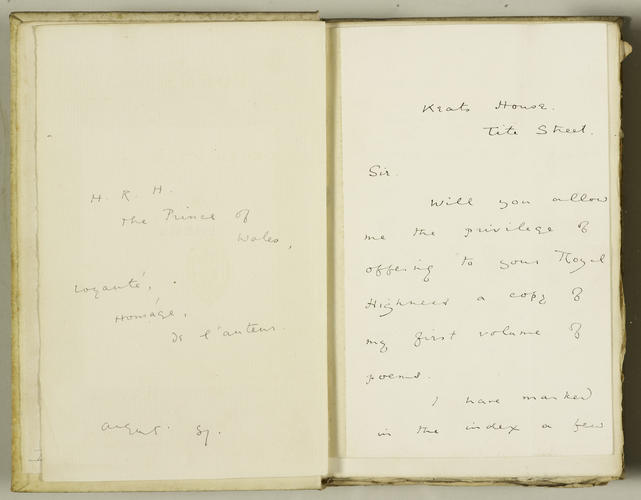 H. R. H.
the Prince of
Wales,
Loyauté,
Homâge,
de l'auteur.
August. 81.
Keats House.
Tite Street.
Sir.
Will you allow
me the privilege of
offering to your Royal
Highness a copy of
my first volume of
poems.
I have marked
in the index a few